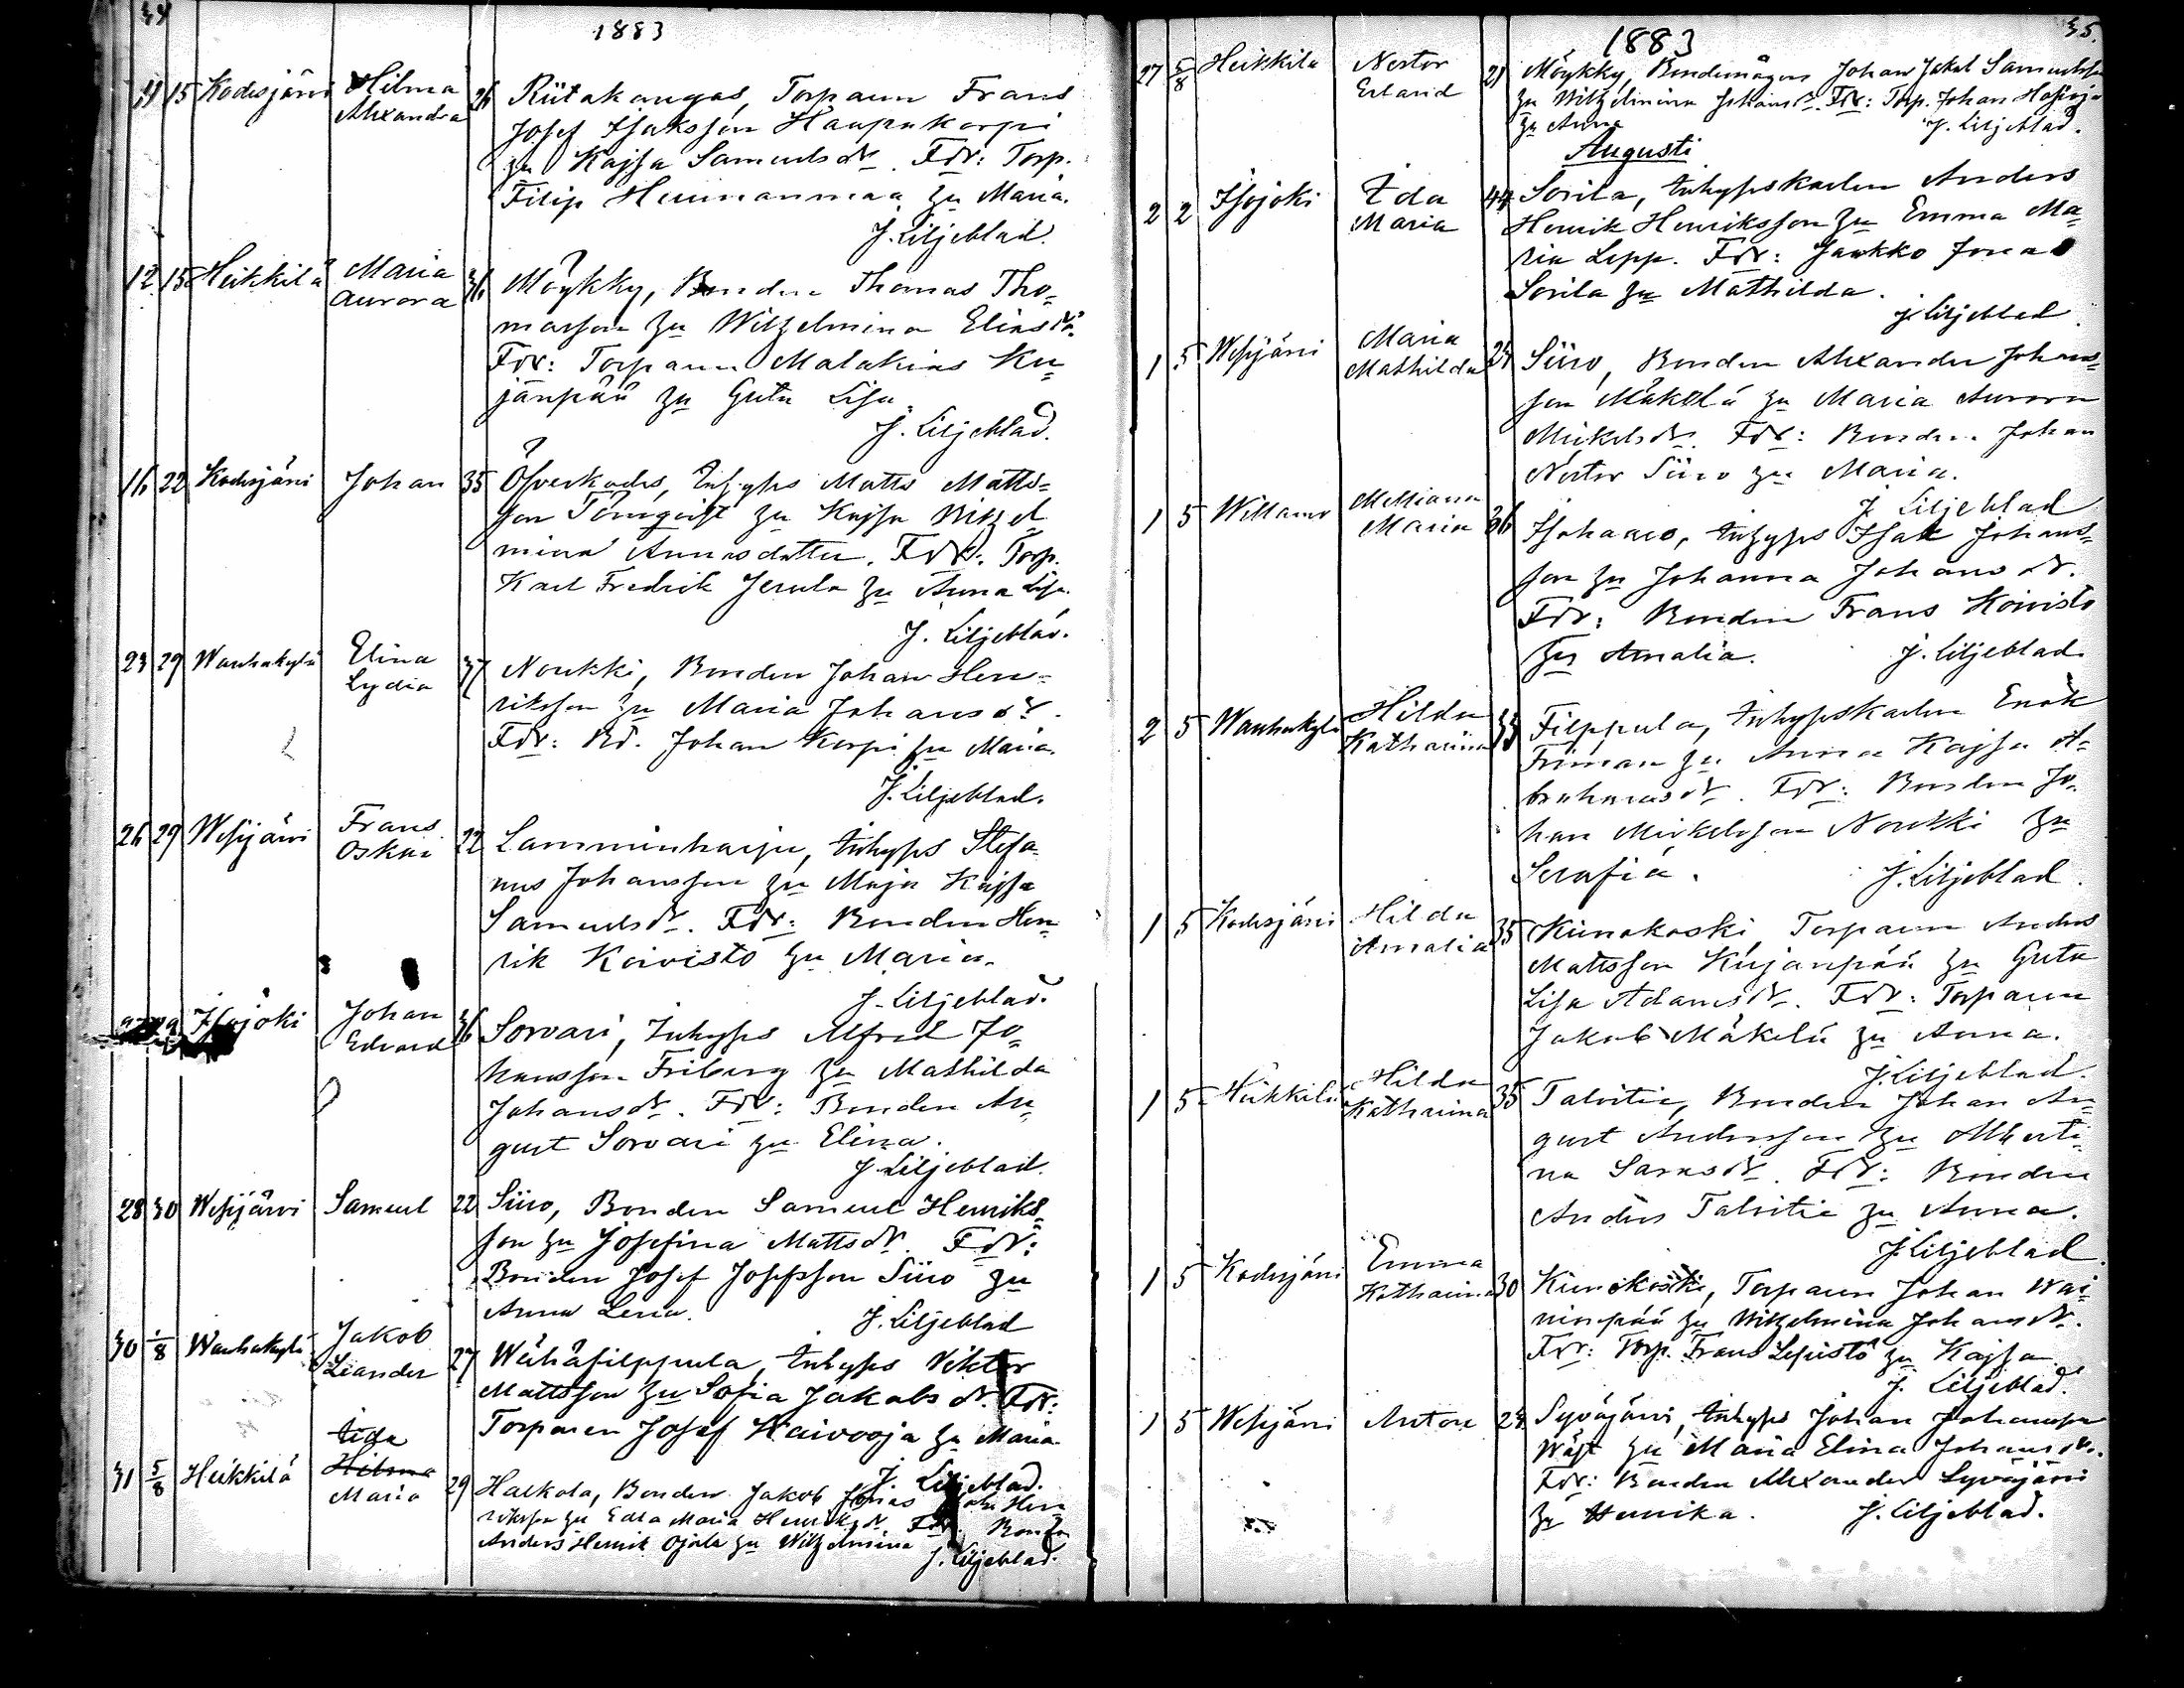 34
1883
11 15 Kodesjärvi Hilma Alexandra 26 Riitakangas, Torparen Frans
Josef Isaksson Haapakorpi
hu Kajsa Samuelsdr. Fdr: Torp.
Filip Hu Maria.
J. Liljeblad.
12 15 Heikkilä Maria Aurora 36 Möykky, Bonden Thomas Tho=
masson hu Wilhelmina Eliasdr.
Fdr: Torparen Malakias Ku=
janpää hu Greta Lisa.
J. Liljeblad.
16 22 Kodesjärvi Johan 35 Öfverkodes, Inhyses Matts Matts=
son Törnqvist hu Kajsa Wilhel
mina Annasdotter. Fdr: Torp.
Karl Fredrik Jerula hu Anna Lisa.
J. Liljeblad.
23 29 Wanhakylä Elina Lydia 37 Noukki, Bonden Johan Hen=
riksson hu Maria Johansdr.
Fdr: Bd. Johan Korpi hu Maria.
J. Liljeblad.
26 29 Wesijärvi Frans Oskar 22 Lamminharju, Inhyses Stefa
nus Johansson hu Maja Kajsa
Samuelsdr. Fdr: Bonden Hen=
rik Koivisto hu Maria.
J. Liljeblad.
27 29 Isojoki Johan Edvard 36 Sorvari, Inhyses Alfred Jo=
hansson Friberg hu Mathilda
Johansdr. Fdr: Bonden Au=
gust Sorvari hu Elina.
J. Liljeblad.
28 30 Wesijärvi Samuel 22 Siiro, Bonden Samuel Henriks=
son hu Josefina Mattsdr. Fdr:
Bonden Josef Josefsson Siiro hu
Anna Lena. J. Liljeblad
30 1/8 Wanhakylä Jakob Leander 27 Wähäfilppula, Inhyses Viktor
Mattsson hu Sofia Jakobsdr. Fdr:
Torparen Josef Kaivooja hu Maria
J. Liljeblad.
31 5/8 Heikkilä Hilma Maria 29 Harkola, Bonden Jakob Jonas Hen
riksson hu Edla Maria Henriksdr. Fdr. Bonden
Anders Henrik Ojala hu Wilhelmina
J. Liljeblad.
35.
1883
27 5/8 Heikkilä Nestor Erland 21 Möykky, Bondemågen Johan Jakob Samuelsson
hu Wilhelmina Johansdr. Fdr: Torp. Johan
hu Anna J. Liljeblad.
Augusti
2 2 Isojoki Ida Maria 44 Sorila, Inhyseskarlen Anders
Henrik Henriksson hu Emma Ma=
ria Lepp. Fdr: Jaakko Jonas
Sorila hu Mathilda.
J. Liljeblad.
1 5 Wesijärvi Maria Mathilda 24 Siiro, Bonden Alexander Johans=
son Mäkelä hu Maria Aurora
Mickelsdr. Fdr: Bonden Johan
Nestor Siiro hu Maria.
J. Liljeblad
1 5 Willamo Maria 36 Isohaaro, Inhyses Isak Johans=
son hu Johanna Johansdr.
Fdr: Bonden Frans Koivisto
hu Amalia. J. Liljeblad.
2 5 Wanhakylä Hilda Katharina 33 Filppula, Inhyseskarlen Enok
Friman hu Anna Kajsa A=
brahamsdr. Fdr: Bonden Jo=
han Mickelsson Noukki hu
Serafia. J. Liljeblad.
1 5 Kodesjärvi Hilda Amalia 35 Kiimakoski Torparen Anders
Mattsson Kujanpää hu Greta
Lisa Adamsdr. Fdr: Torparen
Jakob Mäkelä hu Anna.
J. Liljeblad.
1 5 Heikkilä Hilda Katharina 35 Talvitie, Bonden Johan Au=
gust Andersson hu Alberti=
na Sarasdr. Fdr: Bonden
Anders Talvitie hu Anna.
J. Liljeblad.
1 5 Kodesjärvi Emma Katharina 30 Kiimakoski, Torparen Johan Wai=
nionpää hu Wilhelmina Johansdr.
Fdr: Torp. Frans Lepistö hu Kajsa
J. Liljeblad.
1 5 Wesijärvi Anton 24 Syväjärvi, Inhyses Johan Johansson
Wäst hu Maria Elina Johansdr.
Fdr: Bonden Alexander Syväjärvi
hu Henrika. J. Liljeblad.